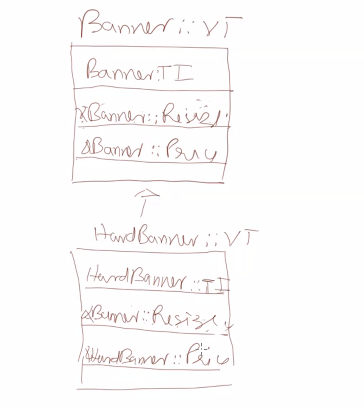 Banner::VT
Banner:TI
&Banner::Resize
&Banner::Price
HardBanner::VT
HardBanner::TI
&Banner::Resize
&HardBanner::Price